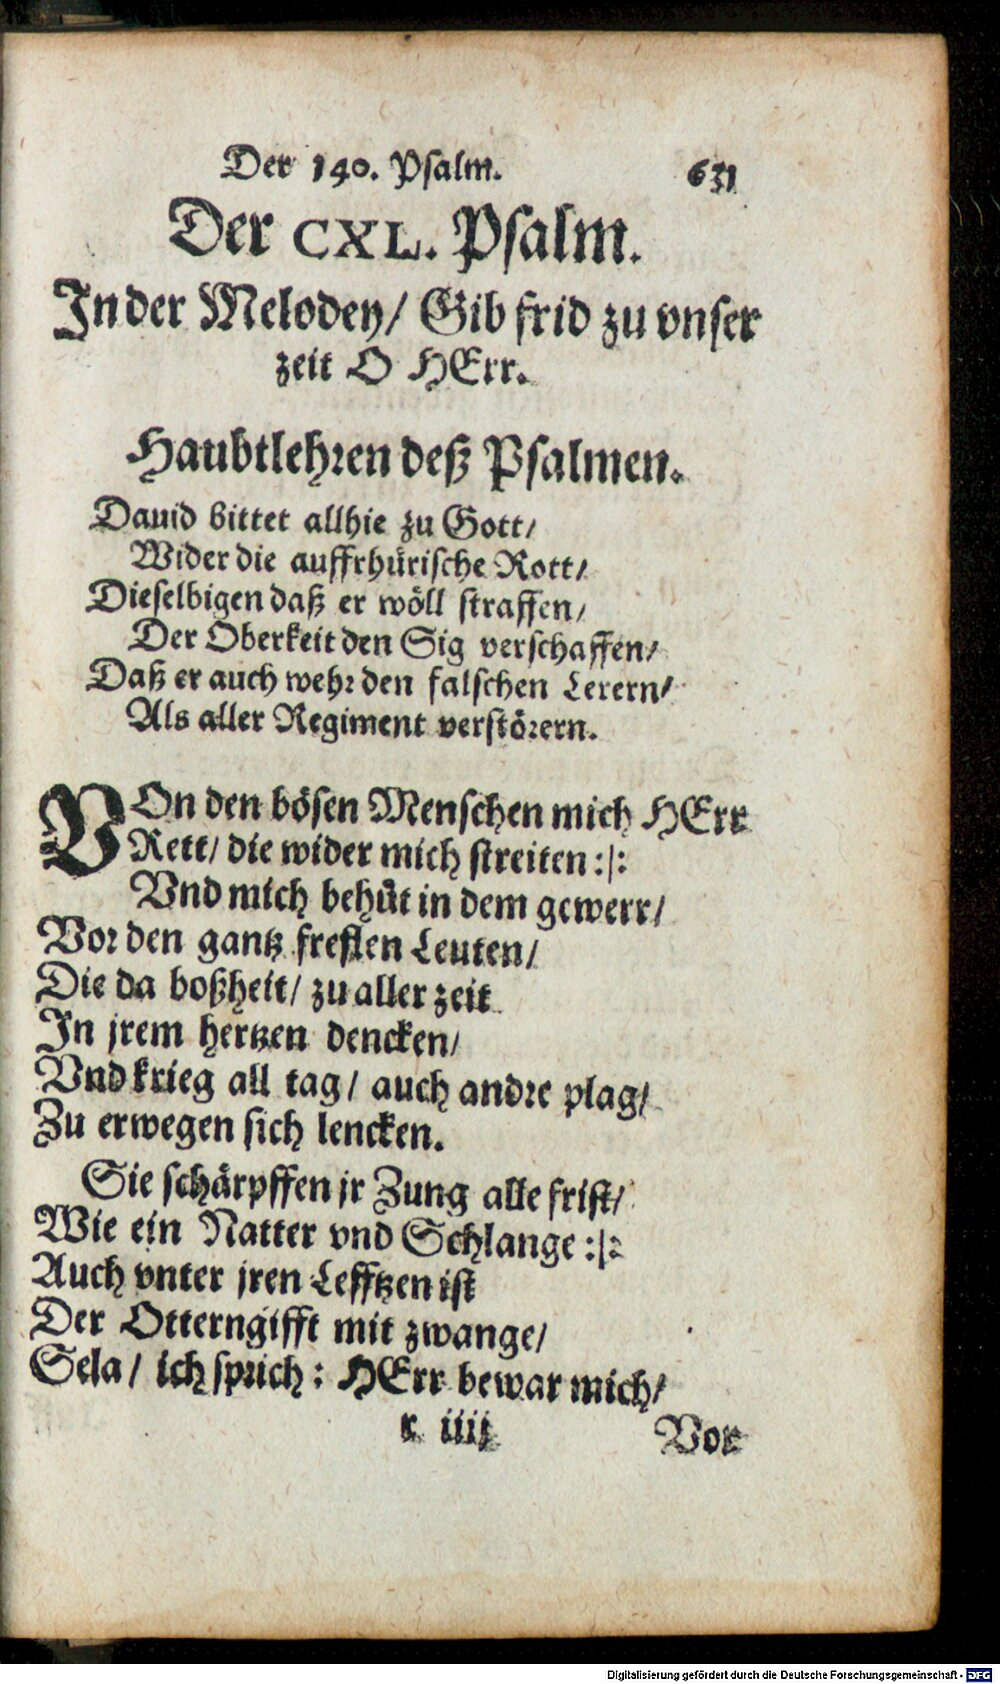 Der 140. Psalm. 631
Der CXL. Psalm.
In der Melodey/ Gib frid zu vnser
zeit O HErr.
Haubtlehren deß Psalmen.
Dauid bittet allhie zu Gott/
Wider die auffrhürische Rott/
Dieselbigen daß er wöll straffen/
Der Oberkeit den Sig verschaffen/
Daß er auch wehr den falschen Lerern/
Als aller Regiment verstörern.
VOn den bösen Menschen mich HErr
Rett/ die wider mich streiten :/:
Vnd mich behüt in dem gewerr/
Vor den gantz freflen Leuten/
Die da boßheit/ zu aller zeit
In jrem hertzen dencken/
Vnd krieg all tag/ auch andre plag/
Zu erwegen sich lencken.
Sie schärpffen jr Zung alle frist/
Wie ein Natter vnd Schlange :/:
Auch vnter jren Lefftzen ist
Der Otterngifft mit zwange/
Sela/ ich sprich: HErr bewar mich/
r iiij Vor
Digitalisierung gefördert durch die Deutsche Forschungsgemeinschaft - DFG